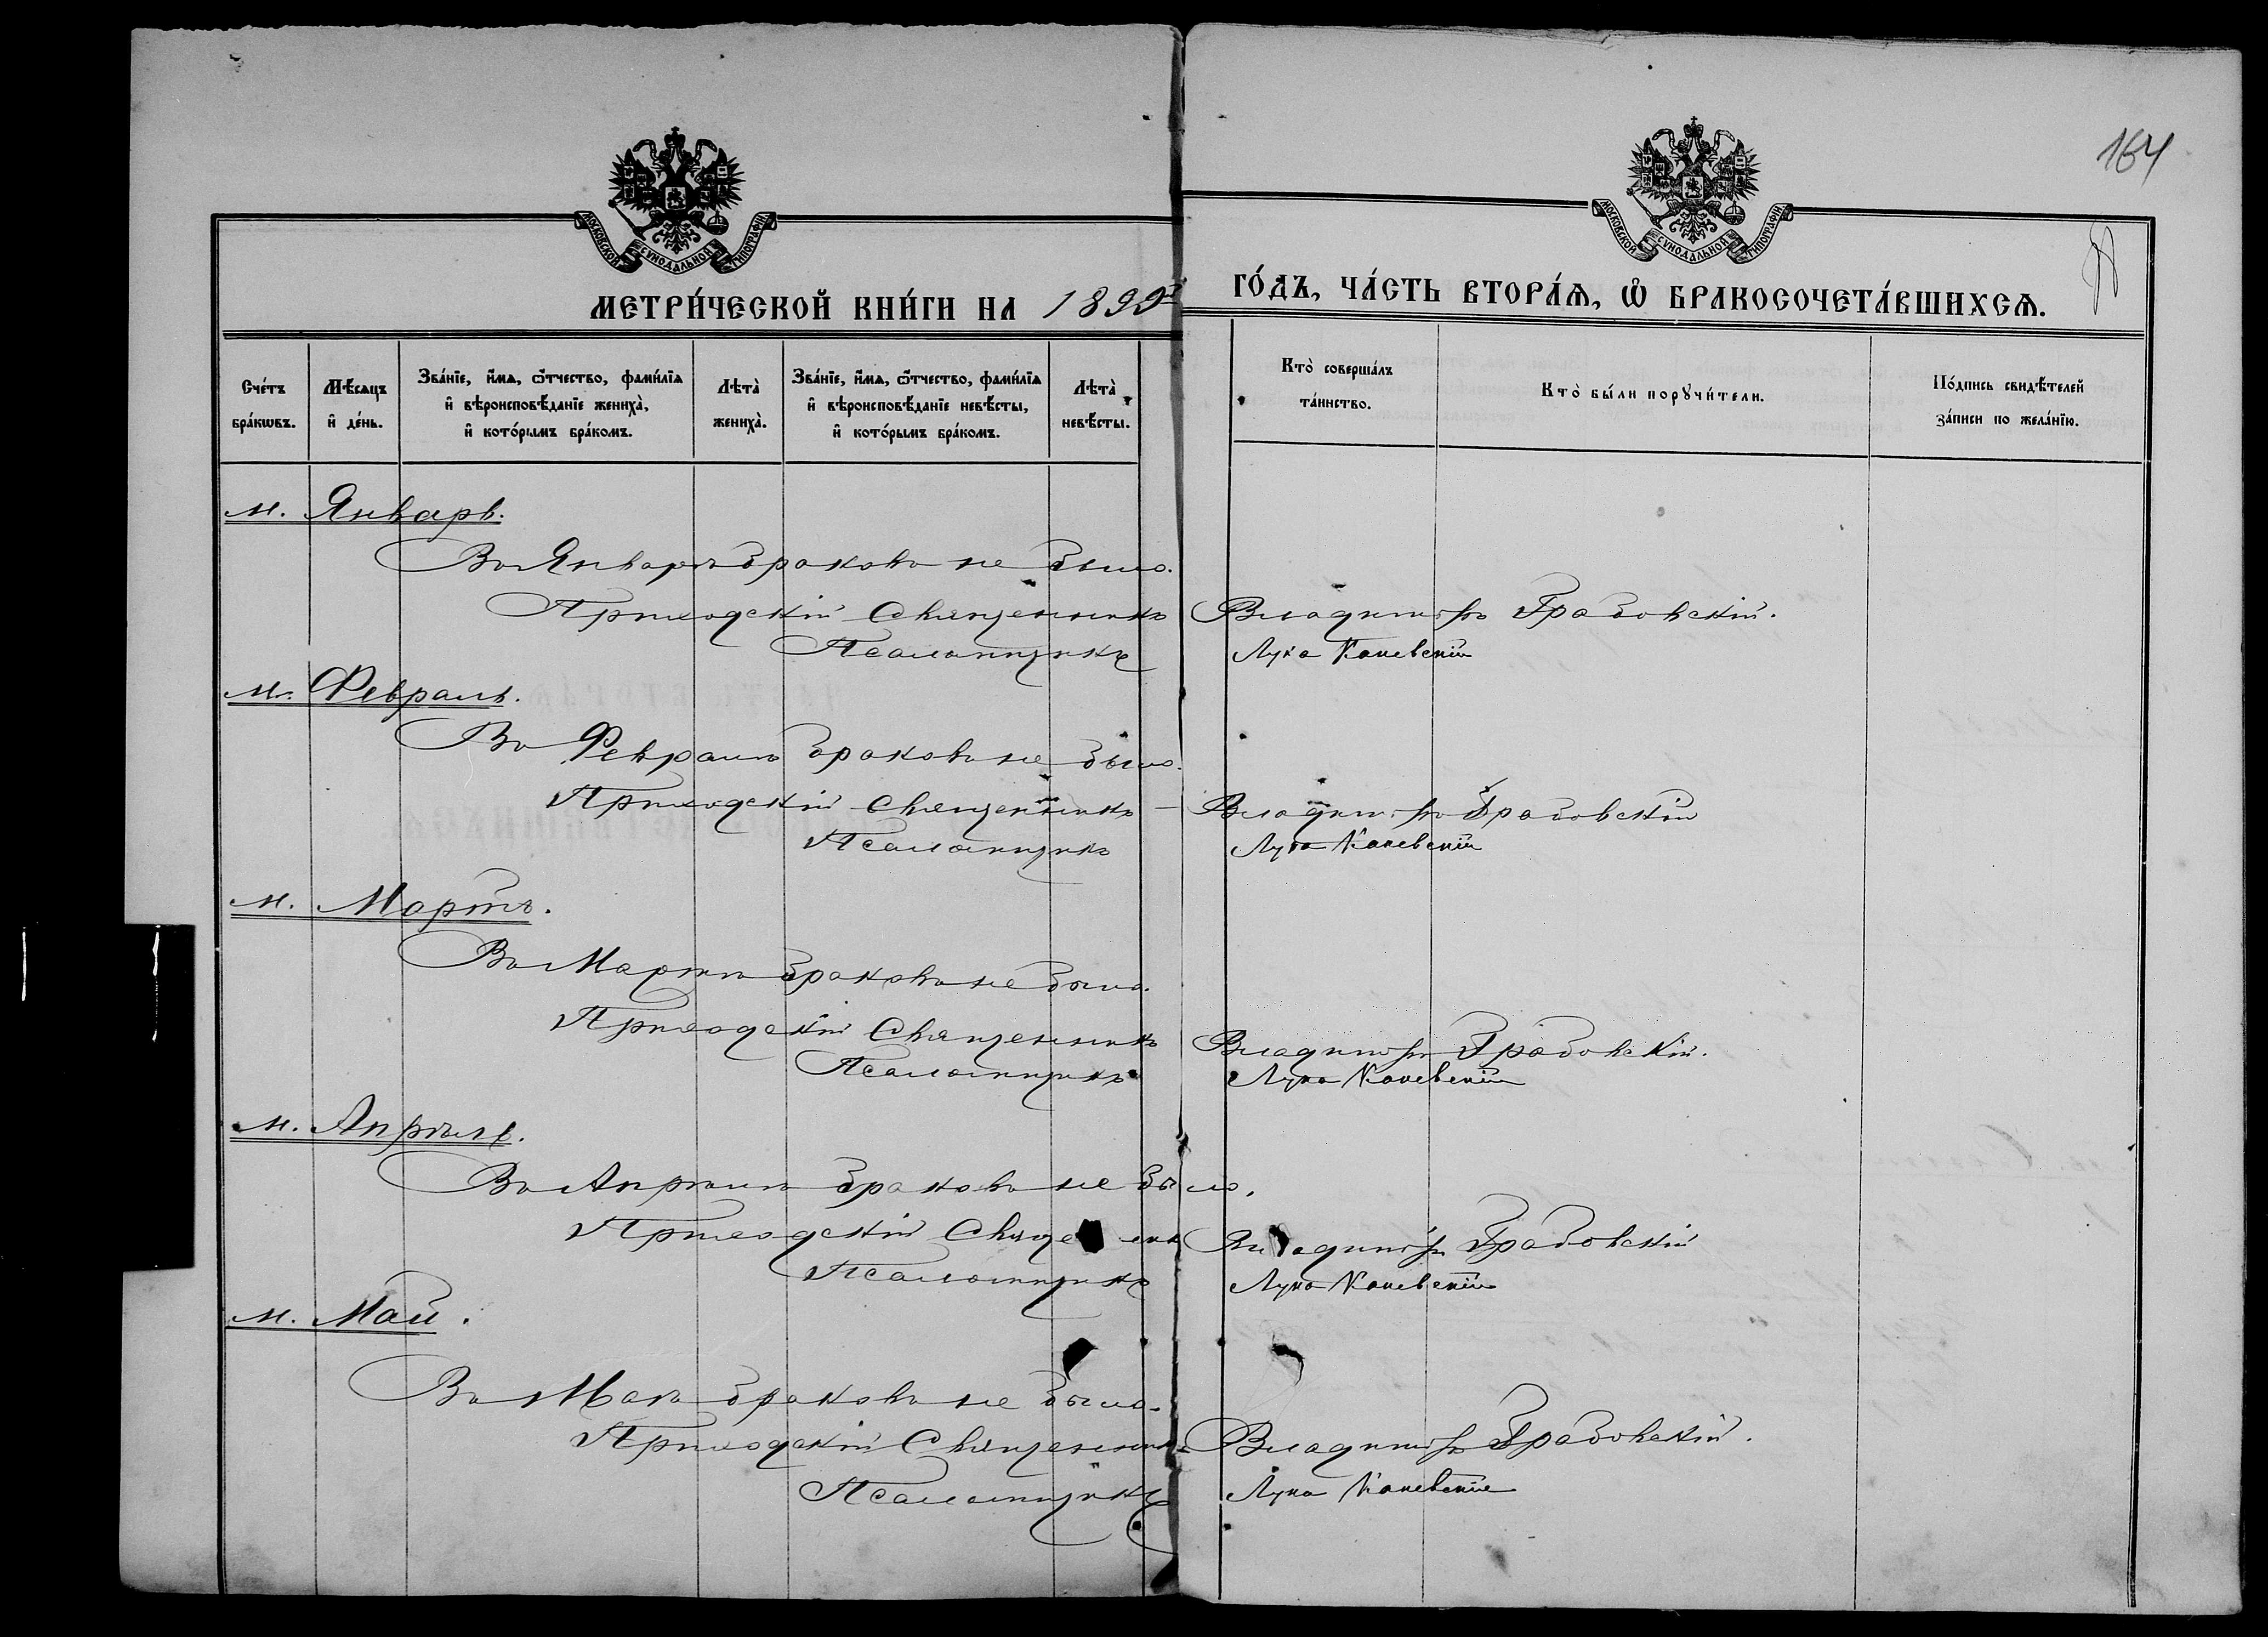 164
МОСКОВСКОЙ СѴНОДАЛЬНОЙ ТИПОГРАФІИ
МОСКОВСКОЙ СѴНОДАЛЬНОЙ ТИПОГРАФІИ
МЕТРИ́ЧЕСКОЙ КНИ́ГИ НА 1899 ГО́ДЪ, ЧА́СТЬ ВТОРА́Ѧ, Ѽ БРАКОСОЧЕТА́ВШИХСѦ.
Сче́тъ
бра́кѡвъ.
Мѣ́сяцъ
и҆ де́нь.
Зва́нїе, и҆́мѧ, ѻ҆́тчество, фами́лїѧ
и҆ вѣроисповѣ́данїе жениха̀,
и҆ кото́рымъ бра́комъ.
Лѣта̀
жениха̀.
Зва́нїе, и҆́мѧ, ѻ҆́тчество, фами́лїѧ
и҆ вѣроисповѣ́данїе невѣ́сты,
и҆ кото́рымъ бра́комъ.
Лѣта̀
невѣ́сты.
Кто̀ соверша́лъ
та́инство.
Кто̀ бы́ли порꙋчи́тели.
По́дпись свидѣ́телей
за́писи по жела́нїю.
м. Январь.
Въ Январѣ браковъ не было.
Приходскій Священникъ Владиміръ Грабовскій.
Псаломщикъ Лука Каневскій
м. Февраль.
Въ Февралѣ браковъ не было.
Приходскій Священникъ – Владиміръ Грабовскій
Псаломщикъ Лука Каневскій
м. Мартъ.
Въ Мартѣ браковъ не было.
Приходскій Священникъ Владиміръ Грабовскій.
Псаломщикъ Лука Каневскій
м. Апрѣль.
Въ Апрѣлѣ браковъ не было.
Приходскій Священникъ Владиміръ Грабовскій
Псаломщикъ Лука Каневскій
м. Май.
Въ Маѣ браковъ не было.
Приходскій Священникъ Владиміръ Грабовскій.
Псаломщикъ Лука Каневскій